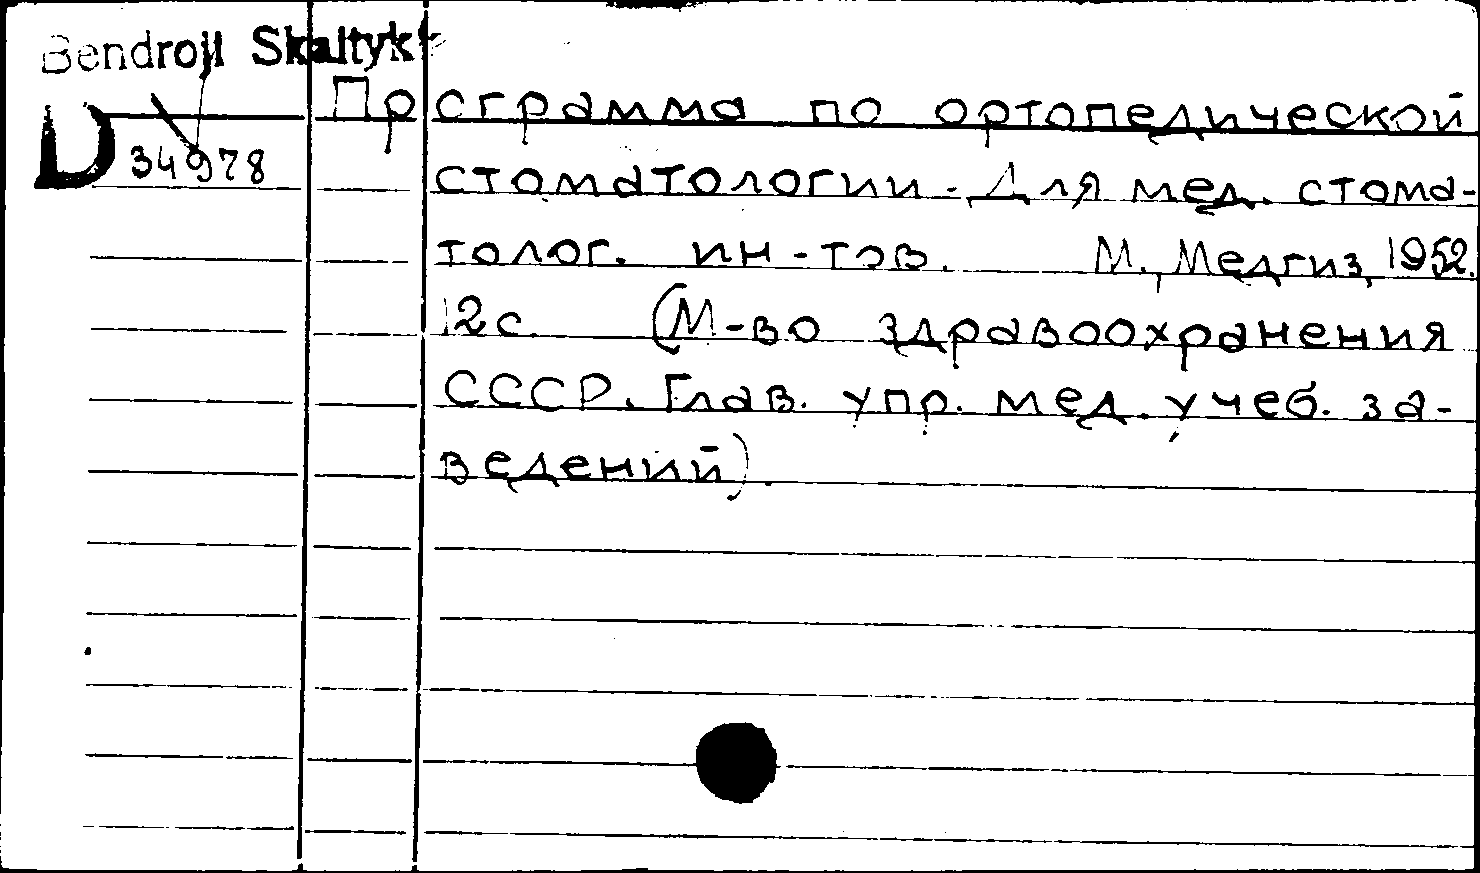 Bendroji Skaityk
Программа по ортопедической
D 34978
стоматологии. Для мед. стома-
толог. ин-тов. М., Медгиз, 1952.
12 с. (М-во здравоохранения
СССР. Глав. упр. мед. учеб. за-
ведений).